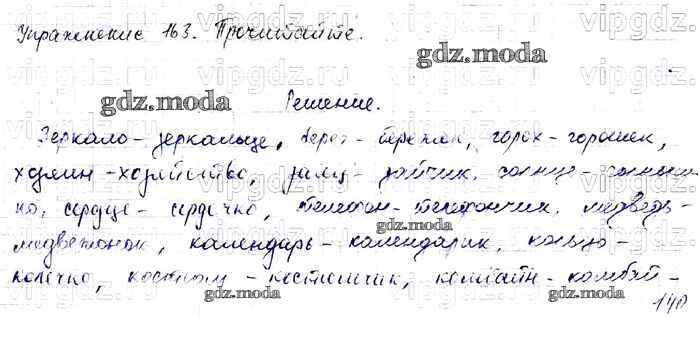 Упражнение 163. Прочитайте.
gdz.moda
gdz.moda
Решение.
Зеркало - зеркальце, берег - бережок, горох - горошек,
хозяин - хозяйство, заяц - зайчик, солнце - солныш-
ко, сердце - сердечко, телефон - телефончик, медведь -
gdz.moda
медвежонок, календарь - календарик, кольцо -
колечко, костюм - костюмчик, комбайн - комбай-
gdz.moda
140